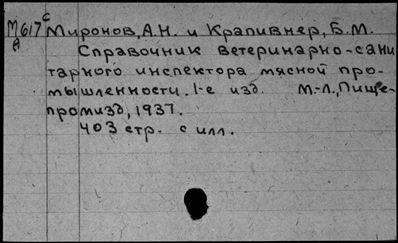 М617с Миронов, А.Н. и Крапивнер, Б.М.
А Справочник ветеринарно-сани
тарного инспектора мясной про-
мышленности. 1-е изд. М.-Л., Пище-
промизд, 1937.
403 стр. с илл.